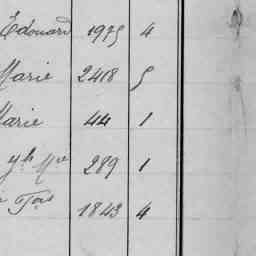 Edouard 1975 4
Marie 2418 5
Marie 44 1
yh Mie 289 1
1843 4